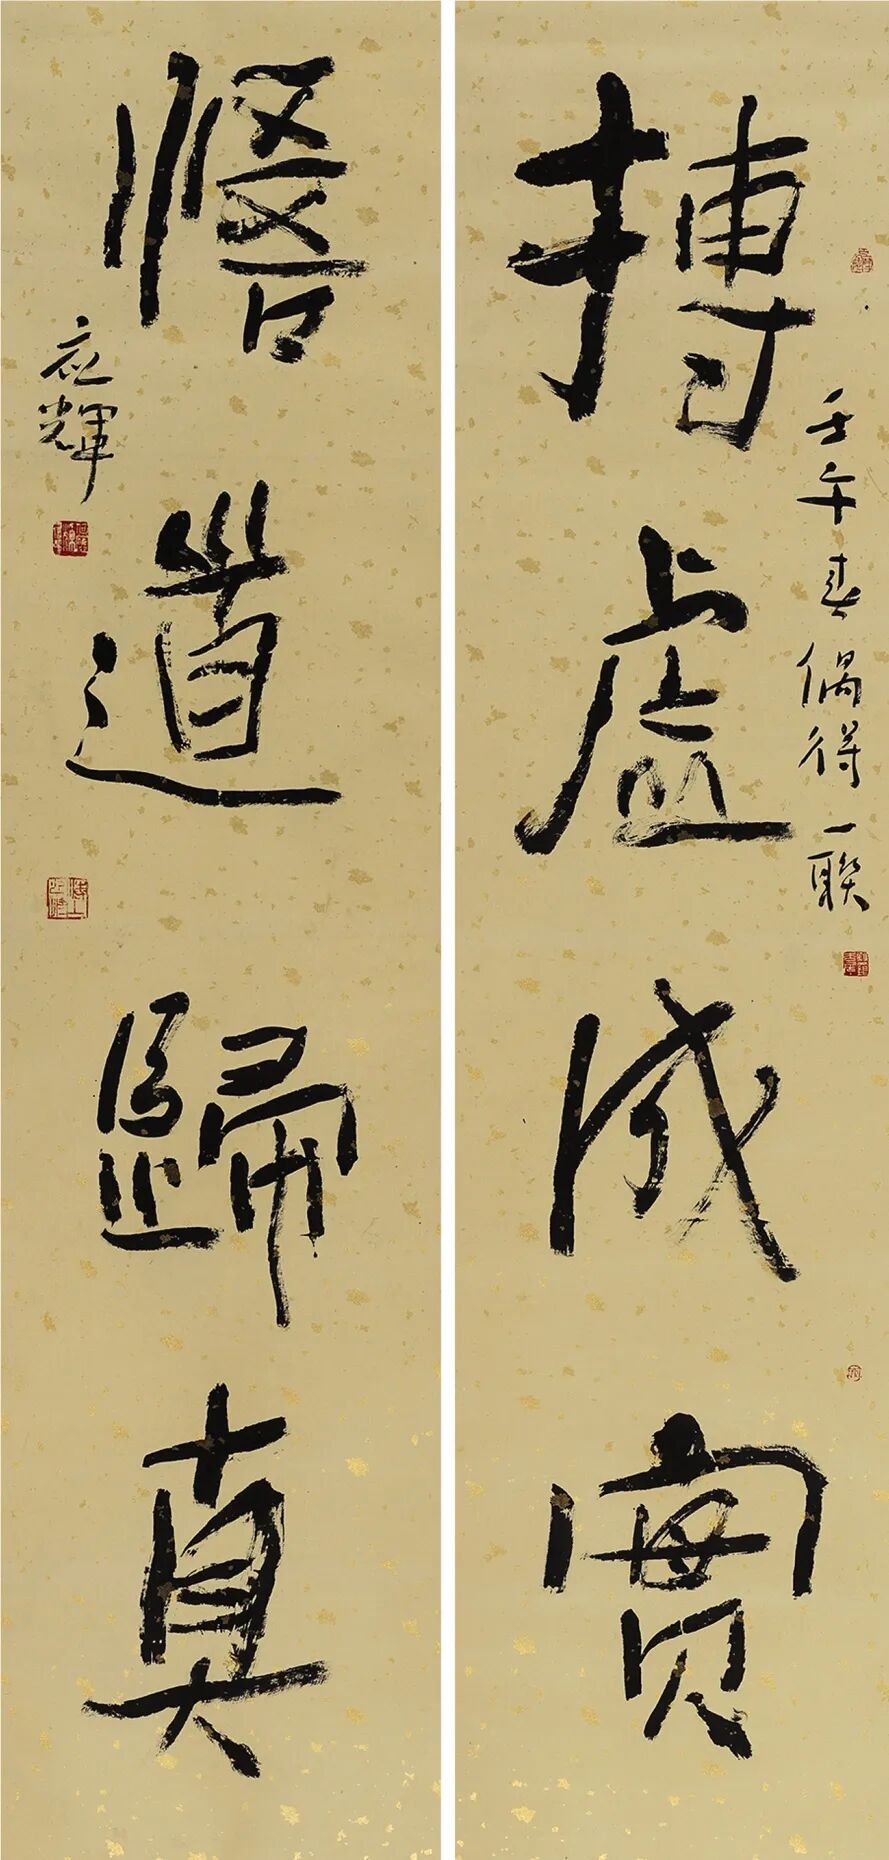 摶虚成實
壬午春偶得一聯
悟道歸真
应輝